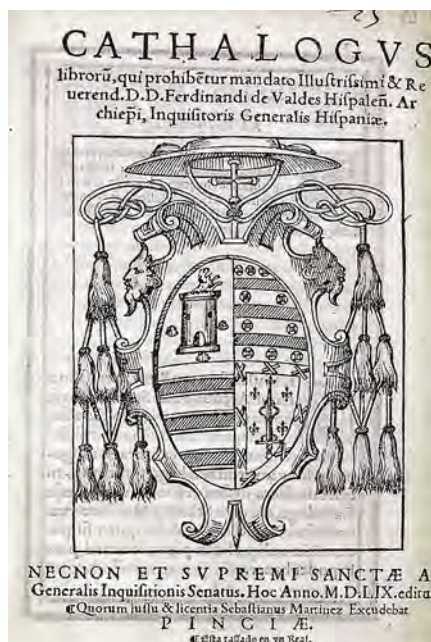 CATHALOGVS
librorũ, qui prohibẽtur mandato Illuſtriſsimi & Re
uerend. D. D. Ferdinandi de Valdes Hiſpaleñ. Ar
chiep̃i, Inquiſitoris Generalis Hiſpaniæ.
NECNON ET SVPREMI SANCTÆ A
Generalis Inquiſitionis Senatus. Hoc Anno. M.D.LIX. editu
¶Quorum juſſu & licentia Sebaſtianus Martinez Excudebat
PINCIÆ.
¶Eſta taſſado en vn Real.